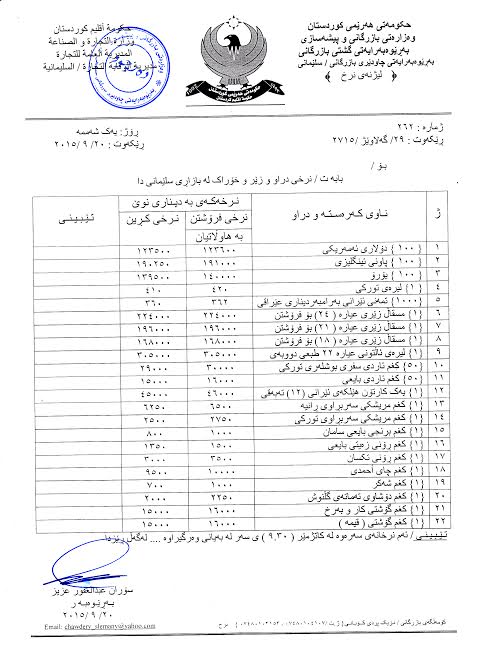 حكومەتى هەرێمى كوردستان
وەزارەتى بازرگانى و پیشەسازى
بەڕێوەبەرایەتى گشتى بازرگانى
بەڕێوەبەرایەتى چاودێرى بازرگانى / سلێمانى
{ لیژنەى نرخ }
حكومة أقليم كردستان
وزارة التجارة و الصناعة
المديرية العامة للتجارة
مديرية الرقابة التجارة / السليمانية
ژمارە : ٢٦٢
ڕێكەوت : ٢٩/ گەلاوێژ /٢٧١٥
ڕۆژ: یەک شەممە
ڕێكەوت : ٢٠/ ٩ /٢٠١٥
بۆ /
بابە ت / نرخى دراو و زێر و خۆراک لە بازارى سلێمانى دا
ژ ناوى كەرەستە و دراو نرخەكەى بە دینارى نوێ تێبینى
نرخى فرۆشتن بە هاوڵاتیان نرخى كڕین
١ { ١٠٠ } دۆلارى ئەمەریكى ١٢٣٦٠٠ ١٢٣٥٠٠
٢ { ١٠٠ } پاونى ئینگلیزى ١٩١٠٠٠ ١٩٠٢٥٠
٣ { ١٠٠ } یۆرۆ ١٤٠٠٠٠ ١٣٩٥٠٠
٤ { ١ } لیرەى توركى ٤٢٠ ٤١٠
٥ {١٠٠٠} تمەنى ئێرانى بەرامبەردینارى عێراقى ٣٦٢ ٣٦٠
٦ {١} مسقال زێرى عیارە ( ٢٤ ) بۆ فرۆشتن ٢٢٤٠٠٠ ٢٢٤٠٠٠
٧ {١} مسقال زێرى عیارە ( ٢١ ) بۆ فرۆشتن ١٩٦٠٠٠ ١٩٦٠٠٠
٨ {١} مسقال زێرى عیارە ( ١٨ ) بۆ فرۆشتن ١٦٨٠٠٠ ١٦٨٠٠٠
٩ {١} لیرەى ئاڵتونى عیارە ٢٢ طبعى دووبەى ٣٠٥٠٠٠ ٣٠٥٠٠٠
١٠ {٥٠} كغم ئاردى سفرى توركى ٣٠٠٠٠ ٢٩٠٠٠
١١ {٥٠} كغم ئاردى بایعى ١٦٠٠٠ ١٥٠٠٠
١٢ {١} یەک كارتون هێلكەى ئێرانى (١٢) تەبەقى ٤٦٠٠٠ ٤٥٠٠٠
١٣ {١} كغم مریشكى سەربڕاوى رانیە ٦٥٠٠ ٦٢٥٠
١٤ {١} كغم مریشكى سەربڕاوى توركى ٢٧٥٠ ٢٥٠٠
١٥ {١} كغم برنجى بایعى سامان ١٠٠٠ ٨٠٠
١٦ {١} كغم ڕۆنى زەیتى بایعى ١٥٠٠ ١٣٥٠
١٧ {١} كغم ڕۆنى تكسان ٣٥٠٠ ٣٠٠٠
١٨ {١} كغم چاى احمدى ١٠٠٠٠ ٩٥٠٠
١٩ {١} كغم شەكر ١٠٠٠ ٧٠٠
٢٠ {١} كغم دۆشاوى تەماتەى گلنوش ٢٢٥٠ ٢٠٠٠
٢١ {١} كغم گۆشتى كار و بەرخ ١٦٠٠٠ ١٥٠٠٠
٢٢ {١} كغم گۆشتى ( قیمە ) ١٦٠٠٠ ١٥٠٠٠
تێبینى / ئەم نرخانەى سەرەوە لە كاتژمێر ( ٩,٣٠ ) ى سەر لە بەیانى وەرگیراوە .... لەگەڵ ڕێزدا
سۆران عبدالغفور عزیز
بەڕێوەبەر
٢٠/ ٩ /٢٠١٥
Email: chawdery_slemany@yahoo.com